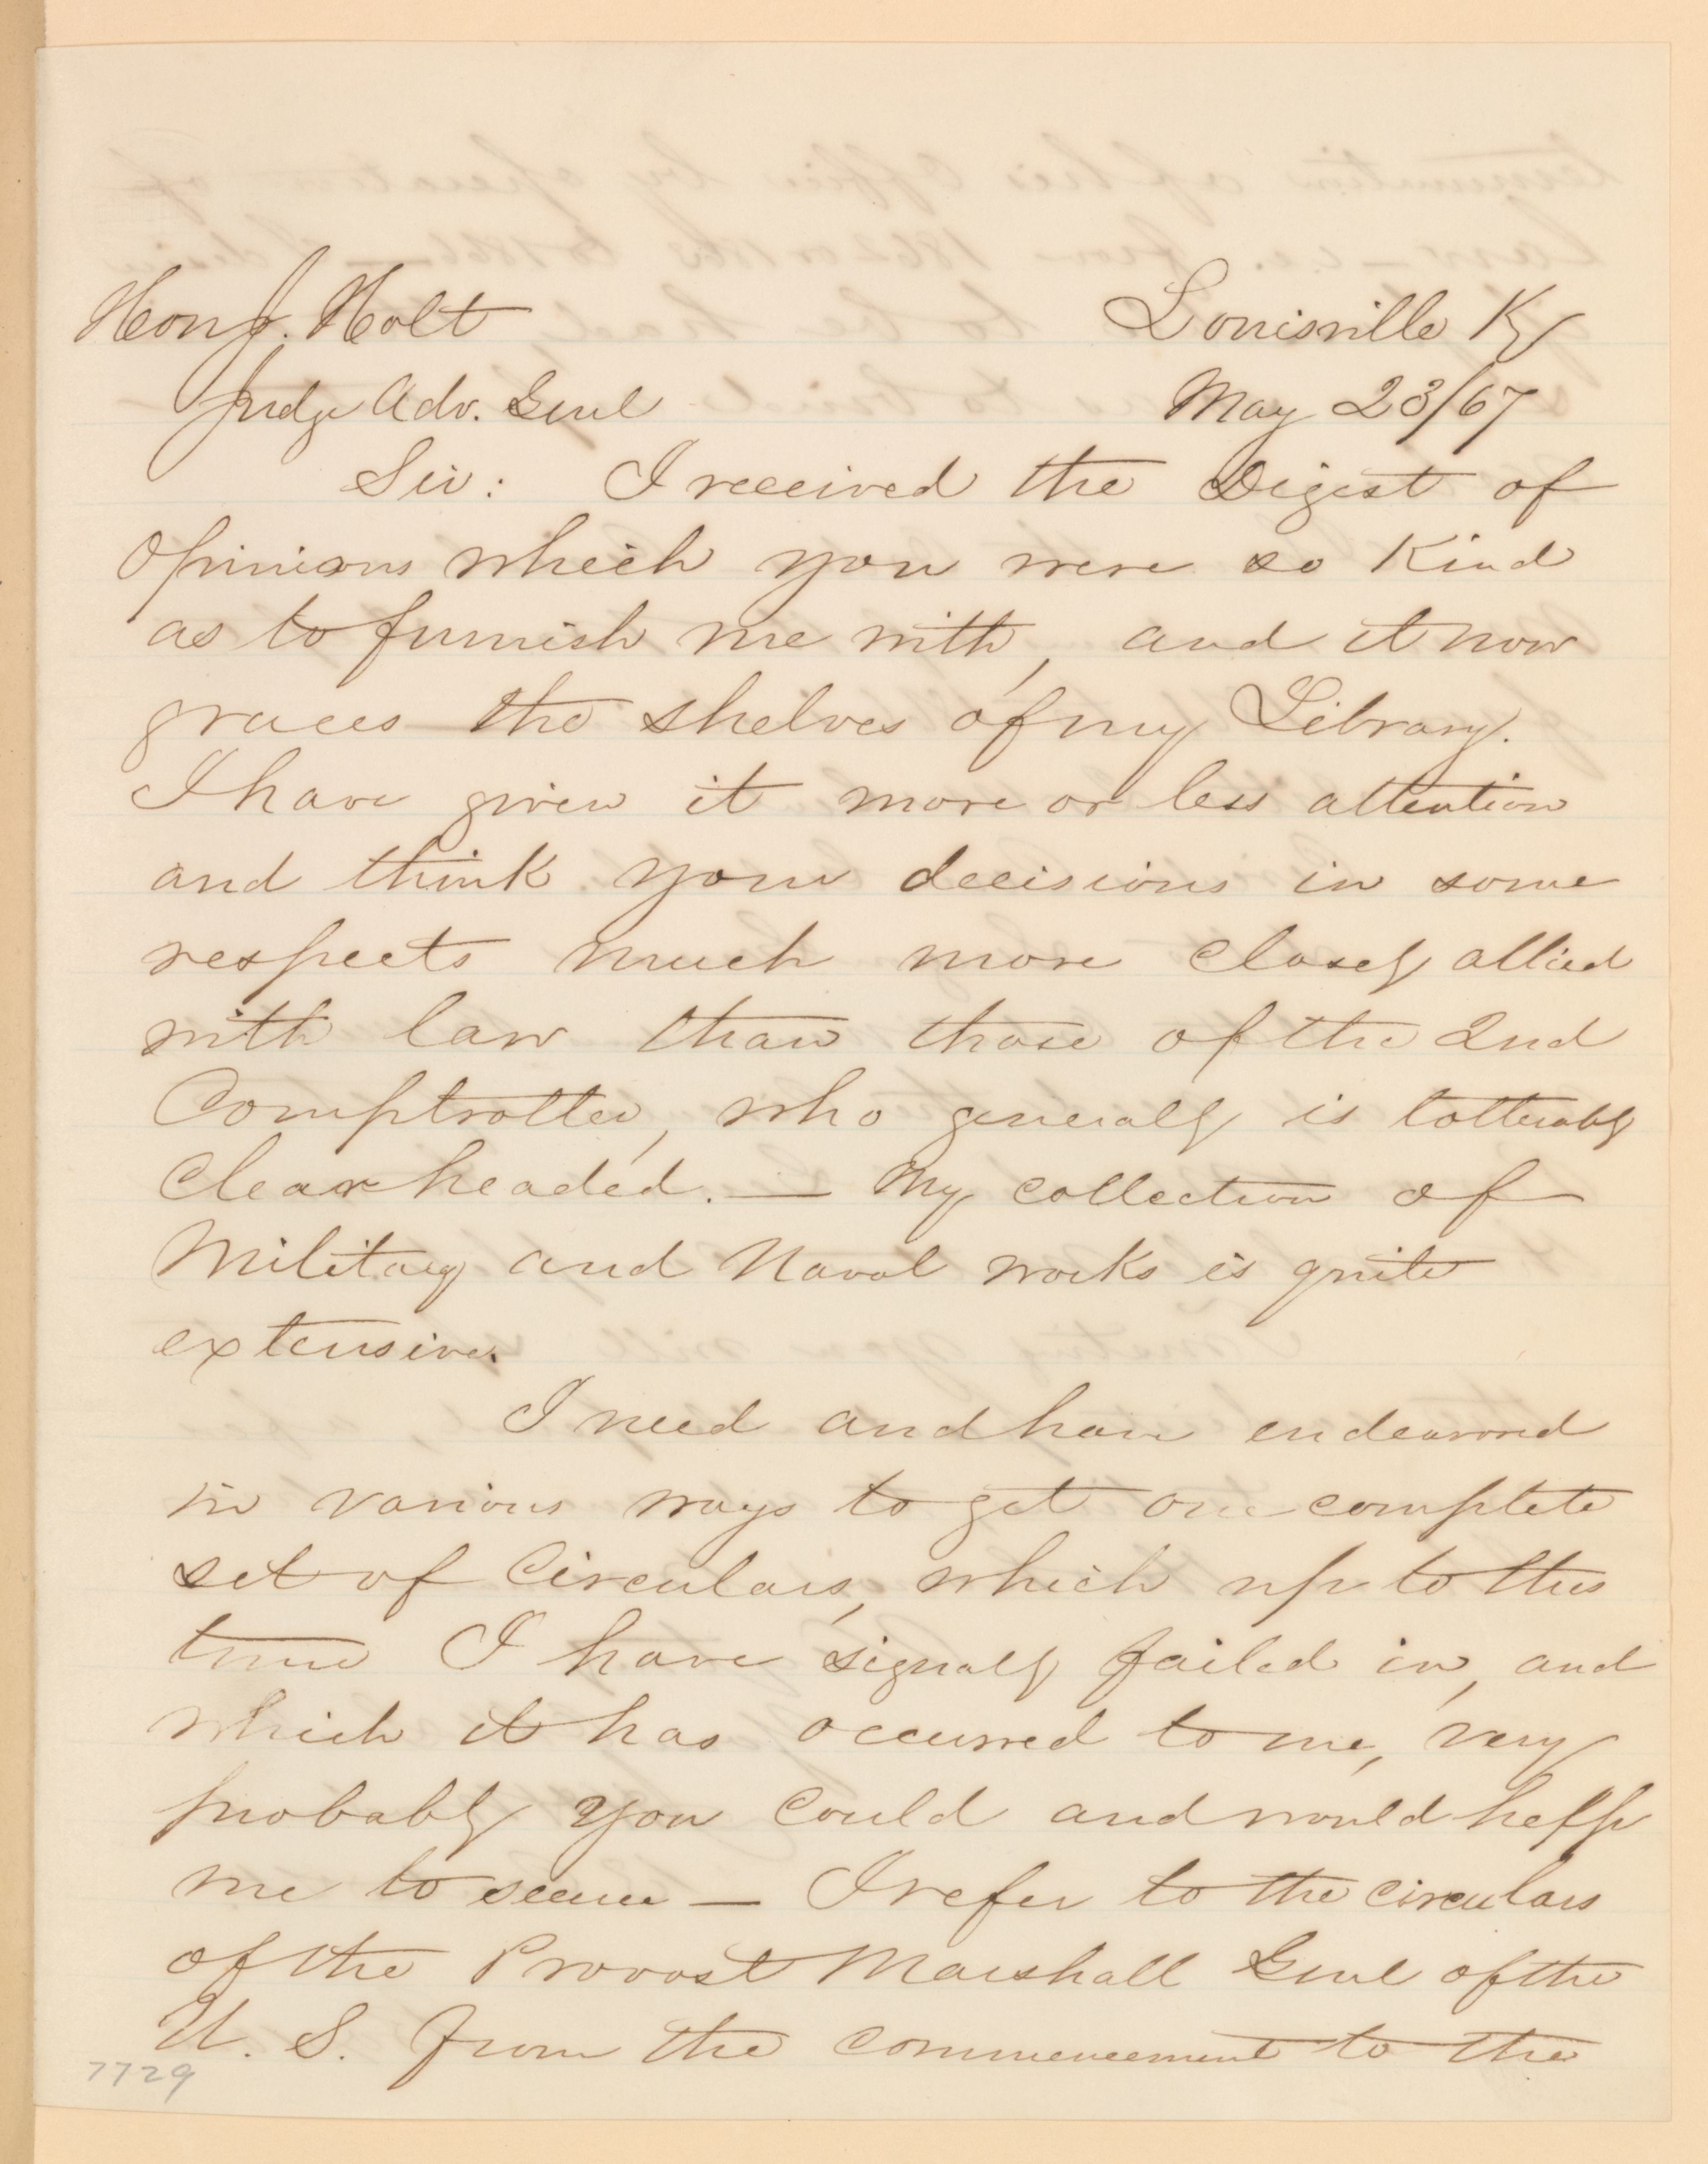 Hon J. Holt
Louisville Ky
Judge Adv. Genl
May 23/67
Sir: I received the Digest of
Opinions which you were so kind
as to furnish me with, and it now
graces the shelves of my Library.
I have given it more or less attention
and think your decisions in some
respects much more closely allied
with law than those of the 2nd
Comptroller, who generally is tollerably
Clear headed. — My collection of
Military and Naval works is quite
extensive.
I need and have endeavored
in various ways to get one complete
set of Circulars, which up to this
time I have signally failed in, and
which it has occurred to me, very
probably you could and would help
me to secure — I refer to the circulars
of the Provost Marshall Genl of the
U. S. from the commencement to the
7729